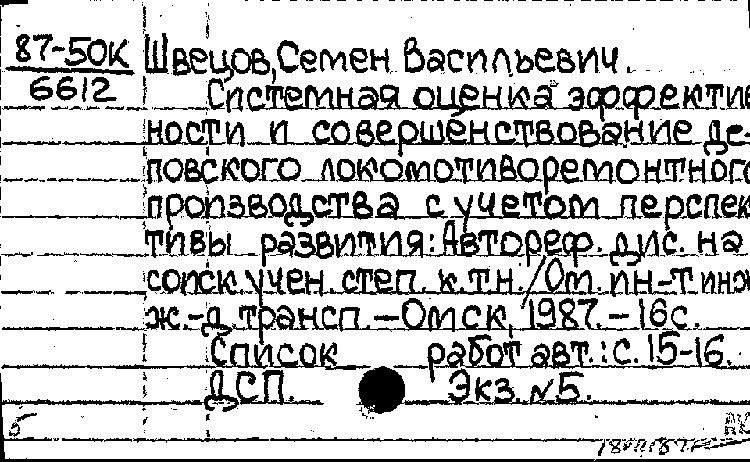 87-50К Швецов, Семен Васильевич.
6612 Системная оценка эффектив
ности и совершенствование де-
повского локомотиворемонтного
производства с учетом перспек
тивы развития: Автореф. дис. на
соиск. учен. степ. к.т.н. / Ом. ин-т инж
ж.-д. трансп. – Омск, 1987. – 16с.
Список работ авт.: с. 15-16.
ДСП. Экз. N5.
б